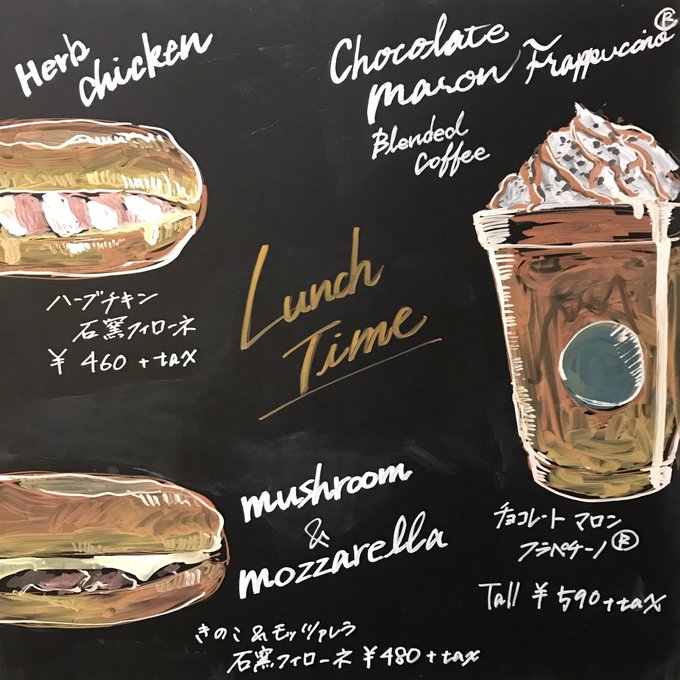 Herb
chicken
Chocolate
maron Frappuccino®
Blended
Coffee
ハーブチキン
石窯フィローネ
¥ 460 + tax
Lunch
Time
mushroom
&
mozzarella
きのこ&モッツァレラ
石窯フィローネ ¥480 + tax
チョコレート マロン
フラペチーノ®
Tall ¥ 590 + tax